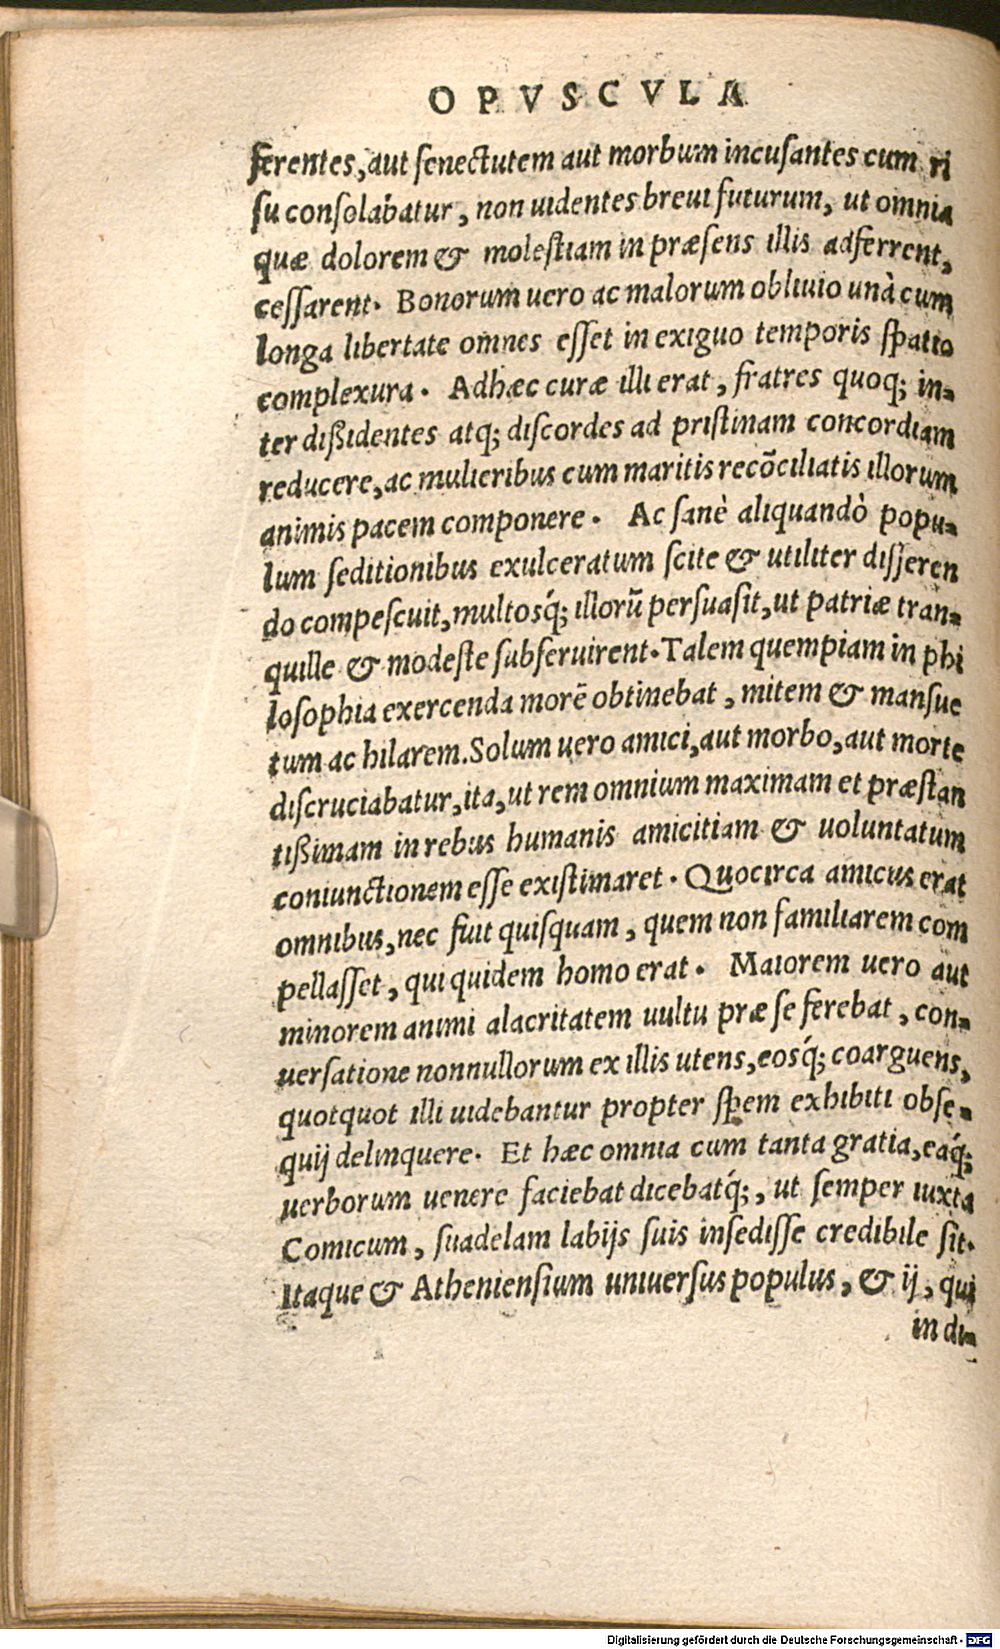 OPVSCVLA
ferentes, aut senectutem aut morbum incusantes cum ri
su consolabatur, non uidentes breui futurum, ut omnia
quæ dolorem & molestiam in præsens illis adferrent,
cessarent. Bonorum uero ac malorum obliuio unà cum
longa libertate omnes esset in exiguo temporis spatio
complexura. Adhæc curæ illi erat, fratres quoq; in-
ter dißidentes atq; discordes ad pristinam concordiam
reducere, ac mulieribus cum maritis recõciliatis illorum
animis pacem componere. Ac sanè aliquandò popu-
lum seditionibus exulceratum scite & utiliter disseren
do compescuit, multosq́; illorũ persuasit, ut patriæ tran-
quille & modeste subseruirent. Talem quempiam in phi
losophia exercenda morẽ obtinebat, mitem & mansue
tum ac hilarem. Solum uero amici, aut morbo, aut morte
discruciabatur, ita, ut rem omnium maximam et præstan
tißimam in rebus humanis amicitiam & uoluntatum
coniunctionem esse existimaret. Quocirca amicus erat
omnibus, nec fuit quisquam, quem non familiarem com
pellasset, qui quidem homo erat. Maiorem uero aut
minorem animi alacritatem uultu præ se ferebat, con-
uersatione nonnullorum ex illis utens, eosq́; coarguens,
quotquot illi uidebantur propter spem exhibiti obse-
quij delinquere. Et hæc omnia cum tanta gratia, eaq́;
uerborum uenere faciebat dicebatq́;, ut semper iuxta
Comicum, suadelam labijs suis insedisse credibile sit.
Itaque & Atheniensium uniuersus populus, & ij, qui
in di-
Digitalisierung gefördert durch die Deutsche Forschungsgemeinschaft - DFG